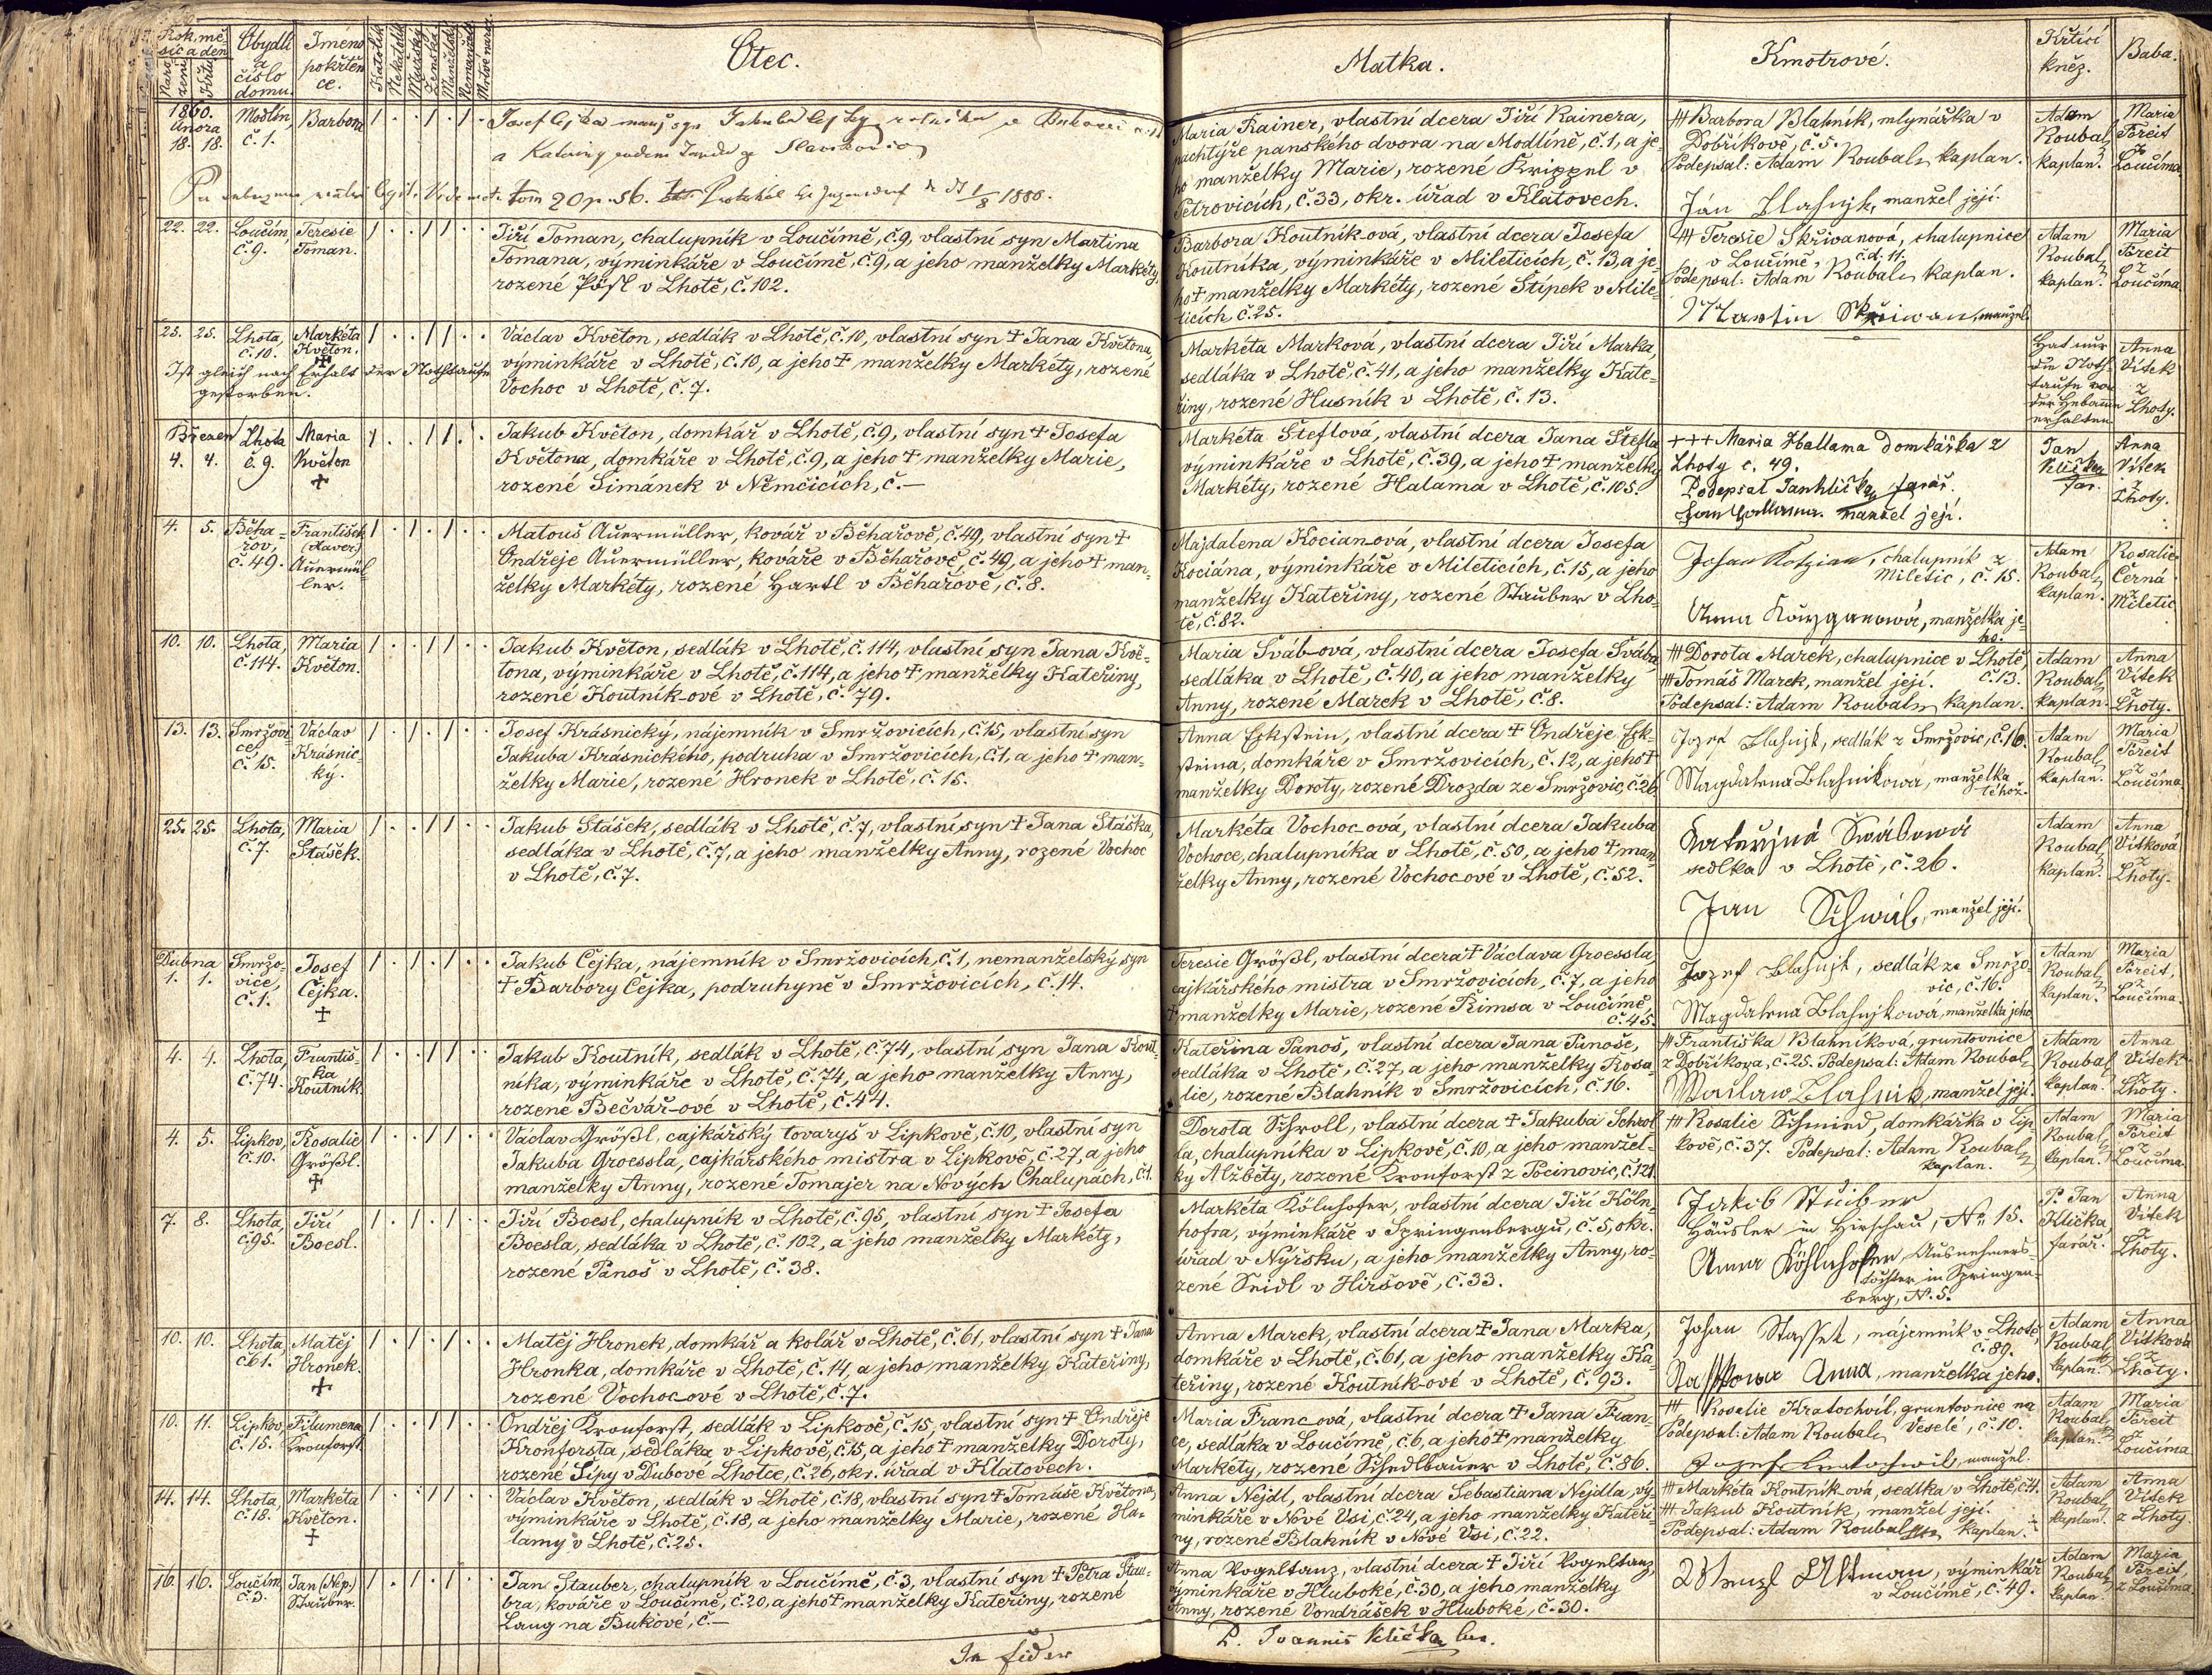 Rok, mě-
síc a den
Naro-
zení
Křtu
Obydlí
a
číslo
domu.
Jméno
pokřtěn-
ce.
Katolík
Nekatolík
Mužský
Ženská
Manželské
Nemanžel.
Mrtvě naroz.
Otec.
Matka.
Kmotrové.
Křtící
kněz.
Baba.
1860.
Února
18. 18.
Modlín,
č. 1.
Barbora
Josef Čejka manž. syn Jakuba Čejky
a Kateřiny
tom 20 p. 56. Protokol 1/8 1880.
Maria Rainer, vlastní dcera Jiří Rainera,
pachtýře panského dvora na Modlíně, č. 1, a je-
ho manželky Marie, rozené Krippel v
Petrovicích, č. 33, okr. úřad v Klatovech.
+++ Barbora Blahník, mlynářka v
Dobříkově, č. 5.
Podepsal: Adam Roubal, kaplan.
Jan Blahnjk, manžel její.
Adam
Roubal,
kaplan.
Maria
Poreit
z
Loučíma.
22. 22.
Loučim,
č. 9.
Teresie
Toman.
Jiří Toman, chalupník v Loučímě, č. 9, vlastní syn Martina
Tomana, výminkáře v Loučímě, č. 9, a jeho manželky Markéty,
rozené Pösl v Lhotě, č. 102.
Barbora Koutník-ová, vlastní dcera Josefa
Koutníka, výminkáře v Mileticích, č. 13, a je-
ho + manželky Markéty, rozené Štípek v Mile-
ticích, č. 25.
+++ Teresie Skřiwanová, chalupnice
v Loučímě, č.d. 11.
Podepsal: Adam Roubal, kaplan.
Martin Skřiwan, manžel.
Adam
Roubal,
kaplan.
Maria
Poreit
z
Loučíma
25. 25.
Lhota,
č. 10.
Markéta
Květon.
+
Ist gleich nach Erhalt der Nothtaufe
gestorben.
Václav Květon, sedlák v Lhotě, č. 10, vlastní syn + Jana Květona,
výminkáře v Lhotě, č. 10, a jeho + manželky Markéty, rozené
Vochoc v Lhotě, č. 7.
Markéta Marková, vlastní dcera Jiří Marka,
sedláka v Lhotě, č. 41, a jeho manželky Kate-
řiny, rozené Husník v Lhotě, č. 13.
Hat nur
die Noth-
taufe von
der Hebamme
erhalten.
Anna
Vítek
z
Lhoty.
Březen
4. 4.
Lhota
č. 9.
Maria
Květon
+
Jakub Květon, domkář v Lhotě, č. 9, vlastní syn + Josefa
Květona, domkáře v Lhotě, č. 9, a jeho + manželky Marie,
rozené Šimánek v Němčicích, č.—
Markéta Šteflová, vlastní dcera Jana Štefla,
výminkáře v Lhotě, č. 39, a jeho + manželky
Markéty, rozené Halama v Lhotě, č. 105.
+++ Maria Hallama domkářka z
Lhoty č. 49.
Podepsal Jan Klička, farář.
Jan Hallama. manžel její.
Jan
Klička
far.
Anna
Vítek
z
Lhoty.
4. 5.
Běha-
řov,
č. 49.
František
(Xaver.)
Auermül-
ler.
Matouš Auermüller, kovář v Běhařově, č. 49, vlastní syn +
Ondřeje Auermüller, kováře v Běhařově, č. 49, a jeho + man-
želky Markéty, rozené Hartl v Běhařově, č. 8.
Majdalena Kocian-ová, vlastní dcera Josefa
Kociána, výminkáře v Mileticích, č. 15, a jeho
manželky Kateřiny, rozené Stauber v Lho-
tě, č. 82.
Johan Kotzian, chalupník z
Miletic, č. 15.
Anna, manželka je-
ho.
Adam
Roubal,
kaplan.
Rosalie
Černá
z
Miletic
10. 10.
Lhota,
č. 114.
Maria
Květon.
Jakub Květon, sedlák v Lhotě, č. 114, vlastní syn Jana Kvě-
tona, výminkáře v Lhotě, č. 114, a jeho + manželky Kateřiny,
rozené Koutník-ové v Lhotě, č. 79.
Maria Šváb-ová, vlastní dcera Josefa Švába,
sedláka v Lhotě, č. 40, a jeho manželky
Anny, rozené Marek v Lhotě, č. 8.
+++ Dorota Marek, chalupnice v Lhotě,
č. 13.
+++ Tomáš Marek, manžel její.
Podepsal: Adam Roubal, kaplan.
Adam
Roubal,
kaplan.
Anna
Vítek
z
Lhoty.
13. 13.
Smržovi-
ce,
č. 15.
Václav
Krásnic-
ký.
Josef Krásnický, nájemník v Smržovicích, č. 15, vlastní syn
Jakuba Krásnického, podruha v Smržovicích, č. 1, a jeho + man-
želky Marie, rozené Hronek v Lhotě, č. 15.
Anna Eckstein, vlastní dcera + Ondřeje Eck-
steina, domkáře v Smržovicích, č. 12, a jeho +
manželky Doroty, rozené Drozda ze Smržovic, č. 26
Jozef Blahnjk, sedlák z Smržovic, č. 16.
Magdalena Blahnikowa, manželka
téhož.
Adam
Roubal,
kaplan.
Maria
Poreit
z
Loučíma
25. 25.
Lhota,
č. 7.
Maria
Stášek.
Jakub Stášek, sedlák v Lhotě, č. 7, vlastní syn + Jana Stáška,
sedláka v Lhotě, č. 7, a jeho manželky Anny, rozené Vochoc
v Lhotě, č. 7.
Markéta Vochoc-ová, vlastní dcera Jakuba
Vochoce, chalupníka v Lhotě, č. 50, a jeho + man-
želky Anny, rozené Vochoc-ové v Lhotě, č. 52.
Kateřjna Swábowá
sedlka v Lhotě, č. 26.
Jan Schwáb, manžel její.
Adam
Roubal,
kaplan.
Anna
Vítková
z
Lhoty.
Dubna
1. 1.
Smržo-
vice,
č. 1.
Josef
Čejka.
+
Jakub Čejka, nájemník v Smržovicích, č. 1, nemanželský syn
+ Barbory Čejka, podruhyně v Smržovicích, č. 14.
Teresie Größl, vlastní dcera + Václava Groessla,
cajkářského mistra v Smržovicích, č. 7, a jeho
+ manželky Marie, rozené Rimsa v Loučímě,
č. 45.
Jozef Blahnjk, sedlák ze Smržo-
vic, č. 16.
Magdalena Blahnjkowá, manželka jeho
Adam
Roubal,
kaplan.
Maria
Poreit,
z
Loučíma.
4. 4.
Lhota,
č. 74.
Františ-
ka
Koutník.
Jakub Koutník, sedlák v Lhotě, č. 74, vlastní syn Jana Kout-
níka, výminkáře v Lhotě, č. 74, a jeho manželky Anny,
rozené Bečvář-ové v Lhotě, č. 44.
Kateřina Panoš, vlastní dcera Jana Panoše,
sedláka v Lhotě, č. 27, a jeho manželky Rosa-
lie, rozené Blahník v Smržovicích, č. 16.
+++ Františka Blahníková, gruntovnice
z Dobříkova, č. 25. Podepsal: Adam Roubal,
Wáclaw Blahnik, manžel její.
Adam
Roubal,
kaplan.
Anna
Vítek
z
Lhoty.
4. 5.
Lipkov,
č. 10.
Rosalie
Größl.
+
Václav Größl, cajkářský tovaryš v Lipkově, č. 10, vlastní syn
Jakuba Groessla, cajkářského mistra v Lipkově, č. 27, a jeho
manželky Anny, rozené Tomajer na Nových Chalupách, č. 1.
Dorota Schroll, vlastní dcera + Jakuba Schrol-
la, chalupníka v Lipkově, č. 10, a jeho manžel-
ky Alžběty, rozené Kronforst z Pocinovic, č. 121.
+++ Rosalie Schmied, domkářka v Lip-
kově, č. 37. Podepsal: Adam Roubal,
kaplan.
Adam
Roubal,
kaplan.
Maria
Poreit
z
Loučíma.
7. 8.
Lhota,
č. 95.
Jiří
Boesl.
Jiří Boesl, chalupník v Lhotě, č. 95, vlastní syn + Josefa
Boesla, sedláka v Lhotě, č. 102, a jeho manželky Markéty,
rozené Panoš v Lhotě, č. 38.
Markéta Kölnhofer, vlastní dcera Jiří Köln-
hofra, výminkáře v Springenbergu, č. 5, okr.
úřad v Nýrsku, a jeho manželky Anny, ro-
zené Seidl v Hiršově, č. 33.
Jakob Stuiber
Häusler in Hirschau, No. 15.
Anna Köhlnhofer, Ausnehmers-
tochter in Springen-
berg, N. 5.
P. Jan
Klička,
farář.
Anna
Vítek
z
Lhoty.
10. 10.
Lhota,
č. 61.
Matěj
Hronek.
+
Matěj Hronek, domkář a kolář v Lhotě, č. 61, vlastní syn + Jana
Hronka, domkáře v Lhotě, č. 14, a jeho manželky Kateřiny,
rozené Vochoc-ové v Lhotě, č. 7.
Anna Marek, vlastní dcera + Jana Marka,
domkáře v Lhotě, č. 61, a jeho manželky Ka-
teřiny, rozené Koutník-ové v Lhotě, č. 93.
Johan Stassek, nájemník v Lhotě,
č. 89.
Anna, manželka jeho.
Adam
Roubal,
kaplan.
Anna
Vítková
z
Lhoty.
10. 11.
Lipkov,
č. 15.
Filumena
Kronforst
Ondřej Kronforst, sedlák v Lipkově, č. 15, vlastní syn + Ondřeje
Kronforsta, sedláka v Lipkově, č. 15, a jeho + manželky Doroty,
rozené Lípy v Dubové Lhotce, č. 26, okr. úřad v Klatovech.
Maria Franc-ová, vlastní dcera + Jana Fran-
ce, sedláka v Loučímě, č. 6, a jeho + manželky
Markéty, rozené Schedlbauer v Lhotě, č. 86.
+++ Rosalie Kratochvíl, gruntovnice na
Podepsal: Adam Roubal, Veselé, č. 10.
Jozef Kratochwil, manžel.
Adam
Roubal,
kaplan.
Maria
Poreit
z
Loučíma
14. 14.
Lhota,
č. 18.
Markéta
Květon.
+
Václav Květon, sedlák v Lhotě, č. 18, vlastní syn + Tomáše Květona,
výminkáře v Lhotě, č. 18, a jeho manželky Marie, rozené Ha-
lamy v Lhotě, č. 25.
Anna Nejdl, vlastní dcera Sebastiana Nejdla, vý-
minkáře v Nové Vsi, č. 24, a jeho manželky Kateři-
ny, rozené Blahník v Nové Vsi, č. 22.
+++ Markéta Koutník-ová, sedlka v Lhotě, č. 4.
+++ Jakub Koutník, manžel její.
Podepsal: Adam Roubal, kaplan.
Adam
Roubal,
kaplan.
Anna
Vítek
z Lhoty.
16. 16.
Loučim,
č. 3.
Jan (Nep.)
Stauber.
Jan Stauber, chalupník v Loučímě, č. 3, vlastní syn + Petra Stau-
bra, kováře v Loučímě, č. 20, a jeho + manželky Kateřiny, rozené
Lang na Bukově, č.—
Anna Vogeltanz, vlastní dcera + Jiří Vogeltanz,
výminkáře v Hluboké, č. 30, a jeho manželky
Anny, rozené Vondrášek v Hluboké, č. 30.
Wenzl Altman, výminkář
v Loučímě, č. 49.
Adam
Roubal,
kaplan.
Maria
Poreit,
z Loučíma
In fidem
P. Joannes Klička